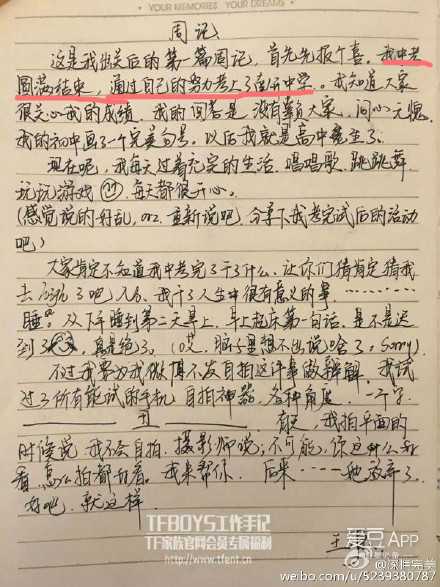 YOUR MEMORIES YOUR DREAMS
周记
这是我出关后的第一篇周记，首先先报个喜。我中考
圆满结束，通过自己的努力考上了南开中学。我知道大家
很关心我的成绩，我的回答是 没有辜负大家，问心无愧
我的初中画了一个完美句号。以后我就是高中生了。
现在呢，我每天过着充实的生活 唱唱歌 跳跳舞
玩玩游戏 每天都很开心。
(感觉说的好乱，orz. 重新说吧，分享下我考完试后的活动
吧)
大家肯定不知道我中考完了干了什么，让你们猜肯定猜我
去 了吧 我干了人生中很有意义的事……
睡。从下午睡到第二天早上，早上起床第一句话，是不是迟
到 真是绝了。 想不出说啥了。Sorry)
不过我要为我微博不发自拍这件事做辩解 我试
过了所有能试的手机 自拍神器 各种角度 一个字
丑
我拍平面的
时候说 我不会自拍 摄影师说：不可能，你这么好
看 怎么拍都好看。我来帮你 后来……她放弃了
好吧，就这样
王
TFBOYS工作手记
TF家族官网会员专属福利
http://www.tfent.cn
爱豆APP
@深性完美
weibo.com/u/5239380787